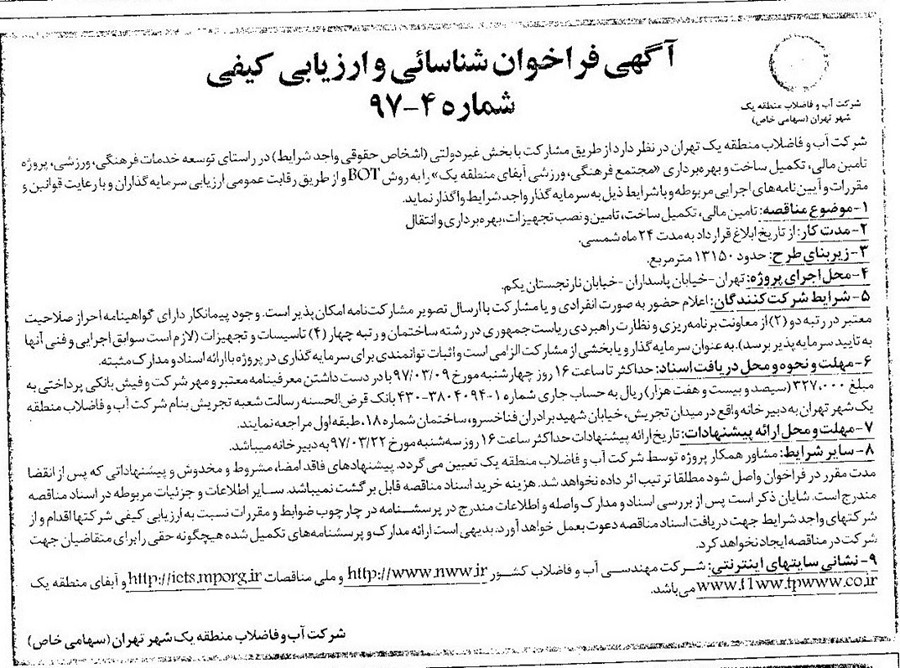 آگهی فراخوان شناسائی و ارزیابی کیفی
شماره ۴-۹۷
شرکت آب و فاضلاب منطقه یک
شهر تهران (سهامی خاص)
شرکت آب و فاضلاب منطقه یک تهران در نظر دارد از طریق مشارکت با بخش غیردولتی (اشخاص حقوقی واجد شرایط) در راستای توسعه خدمات فرهنگی، ورزشی، پروژه
تامین مالی، تکمیل ساخت و بهره‌برداری «مجتمع فرهنگی، ورزشی آبفای منطقه یک» را به روش BOT و از طریق رقابت عمومی ارزیابی سرمایه‌گذاران و با رعایت قوانین و
مقررات و آیین‌نامه‌های اجرایی مربوطه و با شرایط ذیل به سرمایه‌گذار واجد شرایط واگذار نماید.
۱-موضوع مناقصه: تامین مالی، تکمیل ساخت، تامین و نصب تجهیزات، بهره‌برداری و انتقال
۲-مدت کار: از تاریخ ابلاغ قرارداد به مدت ۲۴ ماه شمسی.
۳-زیربنای طرح: حدود ۱۳۱۵۰ مترمربع.
۴-محل اجرای پروژه: تهران-خیابان پاسداران-خیابان نارنجستان یکم.
۵-شرایط شرکت‌کنندگان: اعلام حضور به صورت انفرادی و یا مشارکت با ارسال تصویر مشارکت‌نامه امکان‌پذیر است. وجود پیمانکار دارای گواهینامه احراز صلاحیت
معتبر در رتبه دو (۲) از معاونت برنامه‌ریزی و نظارت راهبردی ریاست‌جمهوری در رشته ساختمان و رتبه چهار (۴) تاسیسات و تجهیزات (لازم است سوابق اجرایی و فنی آنها
به تایید سرمایه‌پذیر برسد). به عنوان سرمایه‌گذار و یا بخشی از مشارکت الزامی است و اثبات توانمندی برای سرمایه‌گذاری در پروژه با ارائه اسناد و مدارک مثبته.
۶-مهلت و نحوه و محل دریافت اسناد: حداکثر تا ساعت ۱۶ روز چهارشنبه مورخ ۹۷/۰۳/۰۹ با در دست داشتن معرفینامه معتبر و مهر شرکت و فیش بانکی پرداختی به
مبلغ ۳۲۷,۰۰۰ (سیصد و بیست و هفت هزار) ریال به حساب جاری شماره ۱-۳۸۰۴۰۹۴-۴۳۰ بانک قرض‌الحسنه رسالت شعبه تجریش بنام شرکت آب و فاضلاب منطقه
یک شهر تهران به دبیرخانه واقع در میدان تجریش، خیابان شهید برادران فناخسرو، ساختمان شماره ۱۸، طبقه اول مراجعه نمایند.
۷-مهلت و محل ارائه پیشنهادات: تاریخ ارائه پیشنهادات حداکثر ساعت ۱۶ روز سه‌شنبه مورخ ۹۷/۰۳/۲۲ به دبیرخانه میباشد.
۸-سایر شرایط: مشاور همکار پروژه توسط شرکت آب و فاضلاب منطقه یک تعیین می‌گردد. پیشنهادهای فاقد امضا، مشروط و مخدوش و پیشنهاداتی که پس از انقضا
مدت مقرر در فراخوان واصل شود مطلقا ترتیب اثر داده نخواهد شد. هزینه خرید اسناد مناقصه قابل برگشت نمیباشد. سایر اطلاعات و جزئیات مربوطه در اسناد مناقصه
مندرج است. شایان ذکر است پس از بررسی اسناد و مدارک واصله و اطلاعات مندرج در پرسشنامه در چارچوب ضوابط و مقررات نسبت به ارزیابی کیفی شرکتها اقدام و از
شرکتهای واجد شرایط جهت دریافت اسناد مناقصه دعوت بعمل خواهد آورد. بدیهی است ارائه مدارک و پرسشنامه‌های تکمیل شده هیچگونه حقی را برای متقاضیان جهت
شرکت در مناقصه ایجاد نخواهد کرد.
۹-نشانی سایتهای اینترنتی: شرکت مهندسی آب و فاضلاب کشور http://www.nww.ir و ملی مناقصات http://icts.mporg.ir و آبفای منطقه یک
www.t1ww.tpwww.co.ir می‌باشد.
شرکت آب و فاضلاب منطقه یک شهر تهران (سهامی خاص)